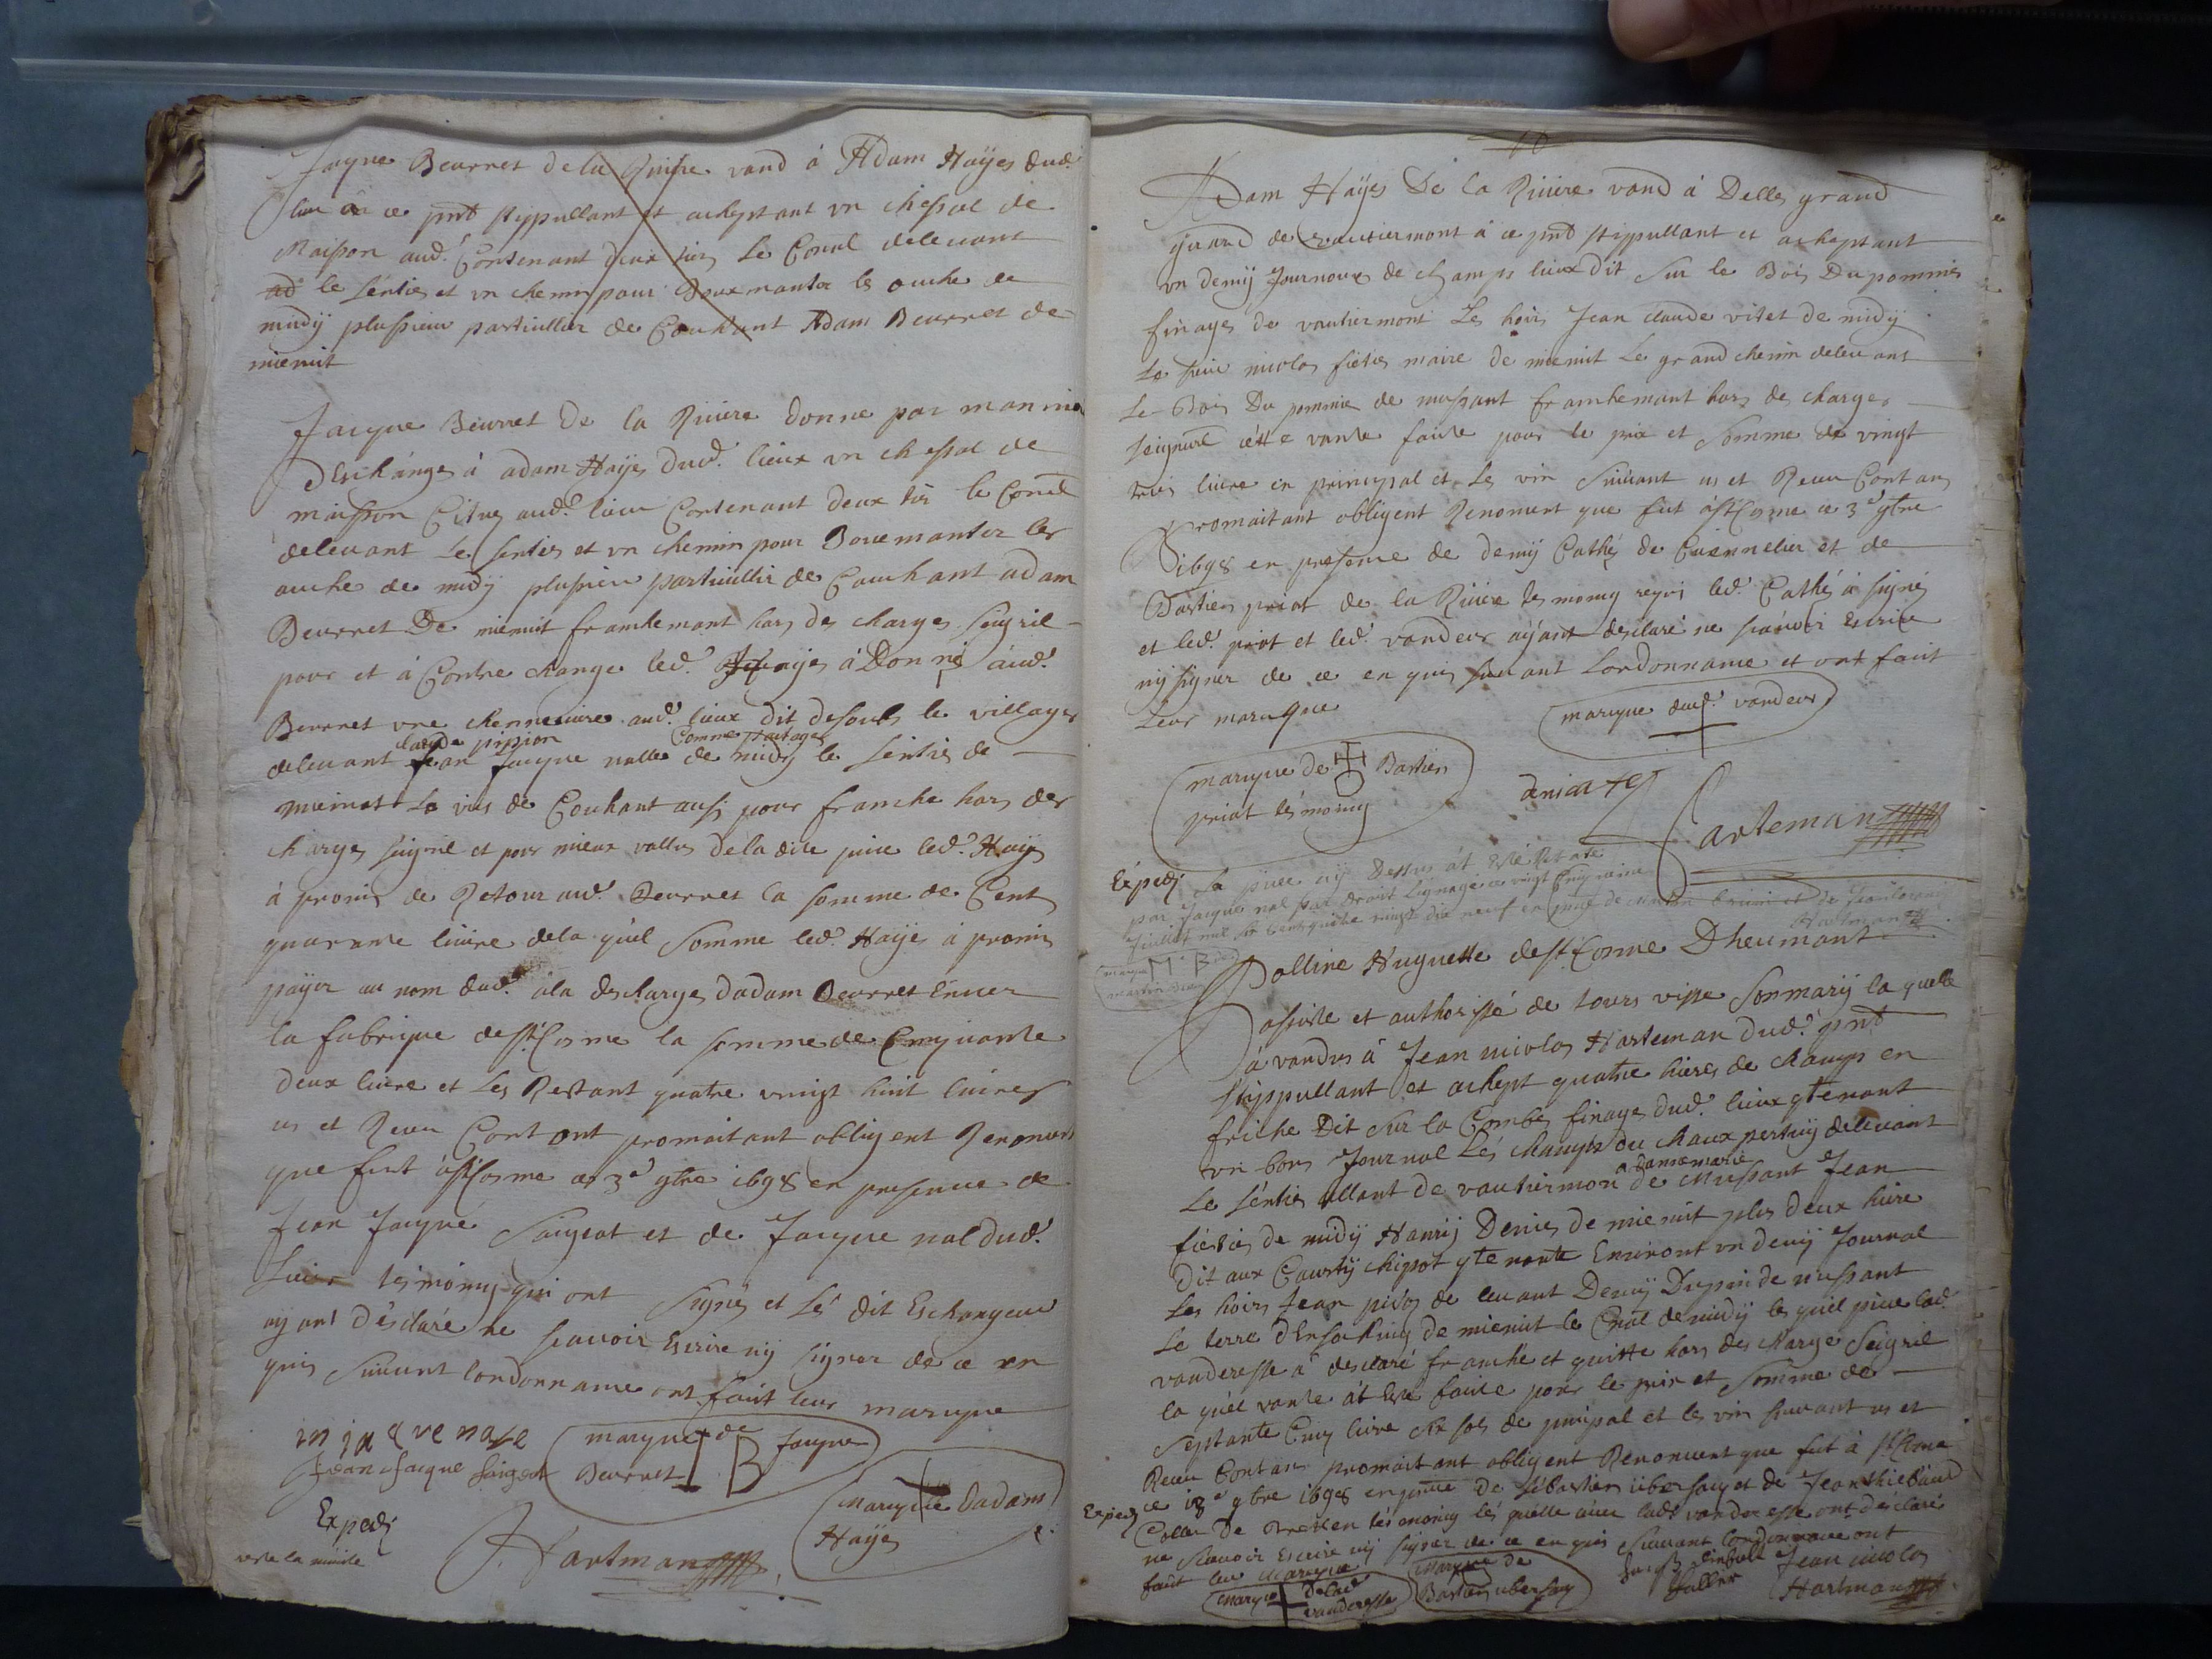 Jacque Beurret de la Riviere vand à Adam Haÿes dud.
lieu à ce pnt stippullant et acheptant vn chessal de
Maison aud. Contenant deux tier Le Conal deleuant
le sentier et vn chemin pour Bouemanter les ouche de
midÿ plussieur particullier de Couchant Adam Beurret de
mienuit
Jacque Beurret De la Riuiere donne par maniere
DEschánge à adam Haÿes dud. lieux vn chessal de
maisson Citué aud. lieu Contenant deux tier le Conal
deleuant Le sentier et vn chemin pour Bouemanter les
ouche de midÿ plussieur particullier de Couchant adam
Beurret De mienuit franchemant hors des charges seigril
pour et à Contre change led. Haÿes à Donné áud.
Beurret vne chenneuiere aud. lieux dit desoubs le village
claude pission Comme partage
deleuant Jean Jacque nalle de midÿ le sentier de
mienuit Le vis de Couchant ausi pour franche hors des
charges seigril et pour mieux vallus de la dite piece led. Haÿes
à promis de Retour aud. Beurret la somme de Cent
quarante liuire de la quél Somme led. Haÿes à promis
páÿer au nom dud. à la descharge dadam Beurret énuer
la fabrique de st Cosme la somme de Cinquante
deux liuire et Les Restant quatre vingt huit liuires
us et Receu Contant promaitant obligent Renoncent
que fut à st Cosme ce 3e 9bre 1698 en presence de
Jean Jacque Saigeat et de Jacque nal dud.
Lieux tesmoing qui ont Signés et Lés dit Eschangeur
aÿant désclaré ne scauoir Escrire nÿ signer de ce en
quis Suiuant lordonnance ont faut leur marcque
in jacque nale
Jean Jacque Saigeat
marque de Jacque
I B
Beurret
marcque dadam
Haÿes
Expedi
reste la minute
J. Hartman
10
Adam Haÿes De la Riuiere vand à Delle grand
Juand de vautiermont à ce pnt stippullant et acheptant
vn demÿ Journaux de champs lieux dit Sur le Bois Du pommier
finages de vautiermont Les hoirs Jean claude vitet de midÿ
Le sieur nicolas fietier maire de mienuit Le grand chemin deleuant
Le Bois Du pommier de mussant franchemant hors des charges
seigneurl cétte vante faite pour le prix et Somme de vingt
trois liuire en principal et Les vin Suiuant us et Receu Contans
Promaitant obligent Renoncent que fut à st Cosme ce 3e 9bre
1698 en presence de demÿ Cathé de Cuennelier et de
Bastien priat de la Riuiere tesmoing requi led. Cathé à signé
et led. priat et led. vandeur aÿant desclaré ne sçáuoir Escrire
nÿ signer de ce en quis suiuant Lordonnance et ont faut
Leur marcque
marcque dud. vandeur
marcque de Bastien
priat tésmoing
Harteman
Expedi
La piece cÿ Dessus át Esté Retraite
par Jacque nal par droit Lignage ce vingt Cinquieme
Juillet mil six Cents quattre vingt dix neuf en
Hartman
marque M B
Polline Huguette de st Cosme Dheumant
assiste et authorissé de tours visse Son marÿ la quelle
à vandus à Jean nicolas Harteman dud. pnt
stippullant et achept quatre hieres de champs en
friche Dit Sur la Combe finage dud. lieux 9tenant
vn bon Journal Lés champs du chaux pertuÿ deleuant
Le séntier allant de vautiermon à danemarie de mussant Jean
fietier de midÿ Hanrÿ Denier de mienuit plus deux hiere
Dit aux Courtÿ chipot 9tenante Enuiront vn demÿ Journal
Les hoirs Jean pidos de leuant Demÿ Dupin de mussant
Le terre dEnsoKing de mienuit le Cnal de midÿ les quél piece lad.
vanderesse à desclaré franche et quitte hors des charge Seigril
la quél vante át Esté faite pour le prix et Somme de
Septante Cinq liuire six sols de pnicipal et les vin suiuant us et
Receu Contans promaitant obligent Renoncent que fut à st Cosme
ce 18e 9bre 1698 en pnce De Sébastien ubersaq et de Jean thiebaud
Coller De Bretten tésmoing lés quélle auec ladt vanderesse ont désclaré
ne Scauoir Escrire nÿ signer de ce en quis Suiuant lordonnance ont
faut leur Marcque
Expedi
Marque de lad
vanderesse
Marque de
Bastien ubersaq
Jean nicolas
Hartman